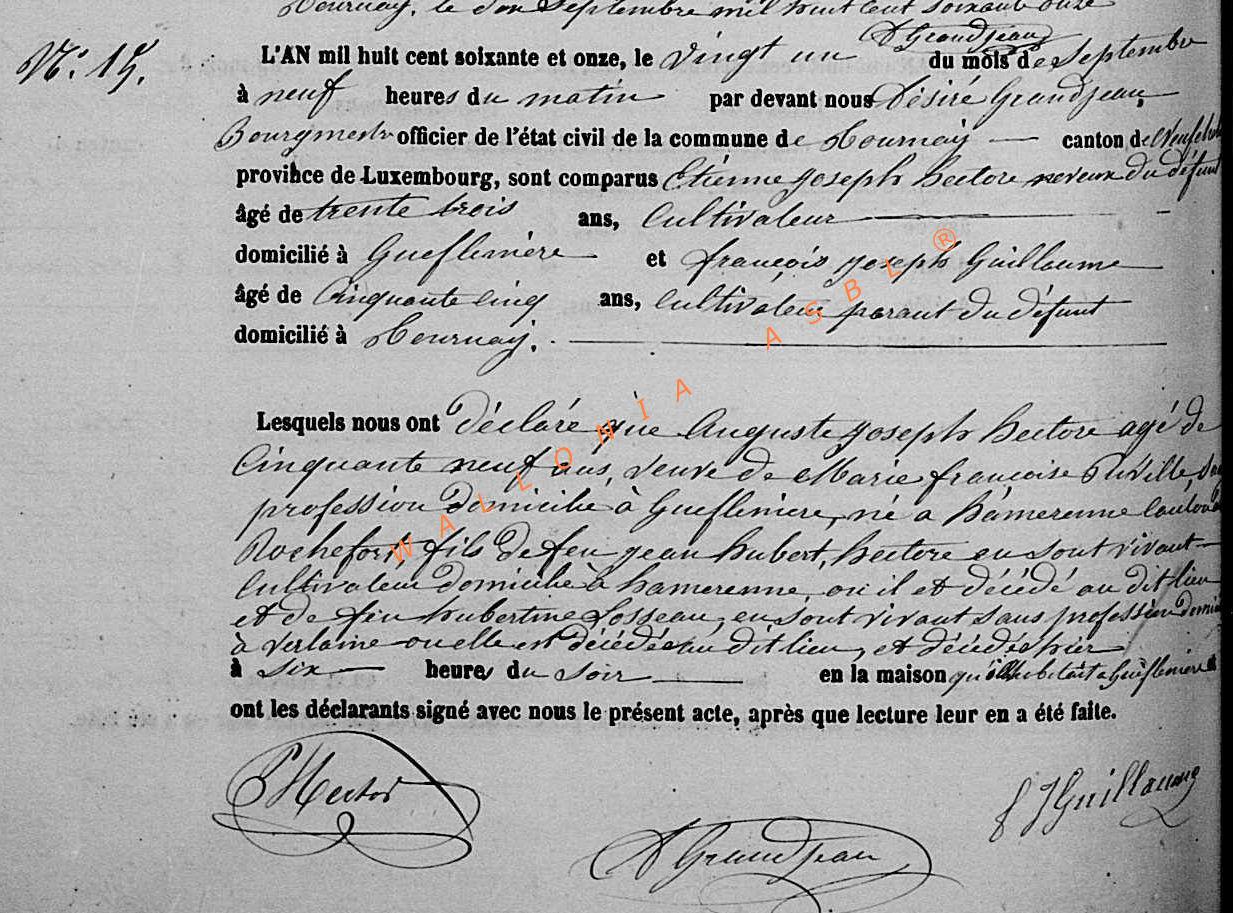 Tournay, le dou Septembre mil huit cent soixante onze
D Grandjean
N°. 15.
L'AN mil huit cent soixante et onze, le vingt un du mois de Septembre
à neuf heures du matin par devant nous Désiré Grandjean,
Bourgmestre officier de l'état civil de la commune de Tournay — canton de Neufchat
province de Luxembourg, sont comparus Etienne Joseph Hectore neveux du défunt
âgé de trente trois ans, Cultivateur
domicilié à Gueflinière et françois joseph Guillaume
âgé de Cinquante cinq ans, cultivateur parant du défunt
domicilié à Tournay.
Lesquels nous ont Déclaré que Auguste joseph Hectore agé de
Cinquante neuf ans, veuve de Marie francoise
profession Domicilie à Gueflinière, né a hamerenne
Rochefort, fils De feu jean hubert, hectore en sont vivant
Cultivateur Domicilié à hamerenne, ou il et décédé au dit lieu
et de feu hubertine Losseau, en sont vivant sans profession domi
à Verlaine ou elle est décédée au dit lieu, et décédé hier
à six heures du soir en la maison qu'il habitait a Gueflinière
ont les déclarants signé avec nous le présent acte, après que lecture leur en a été faite.
Hector
D Grandjean
f J Guillaume
WALLONIA ASBL ®